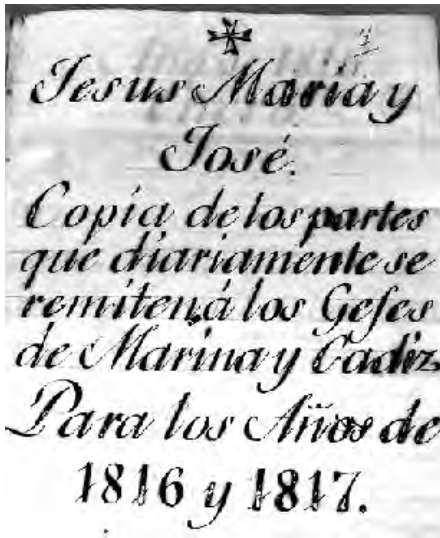 Jesus María y
José.
Copia de los partes
que diariamente se
remiten á los Gefes
de Marina y Cadiz
Para los Años de
1816 y 1817.